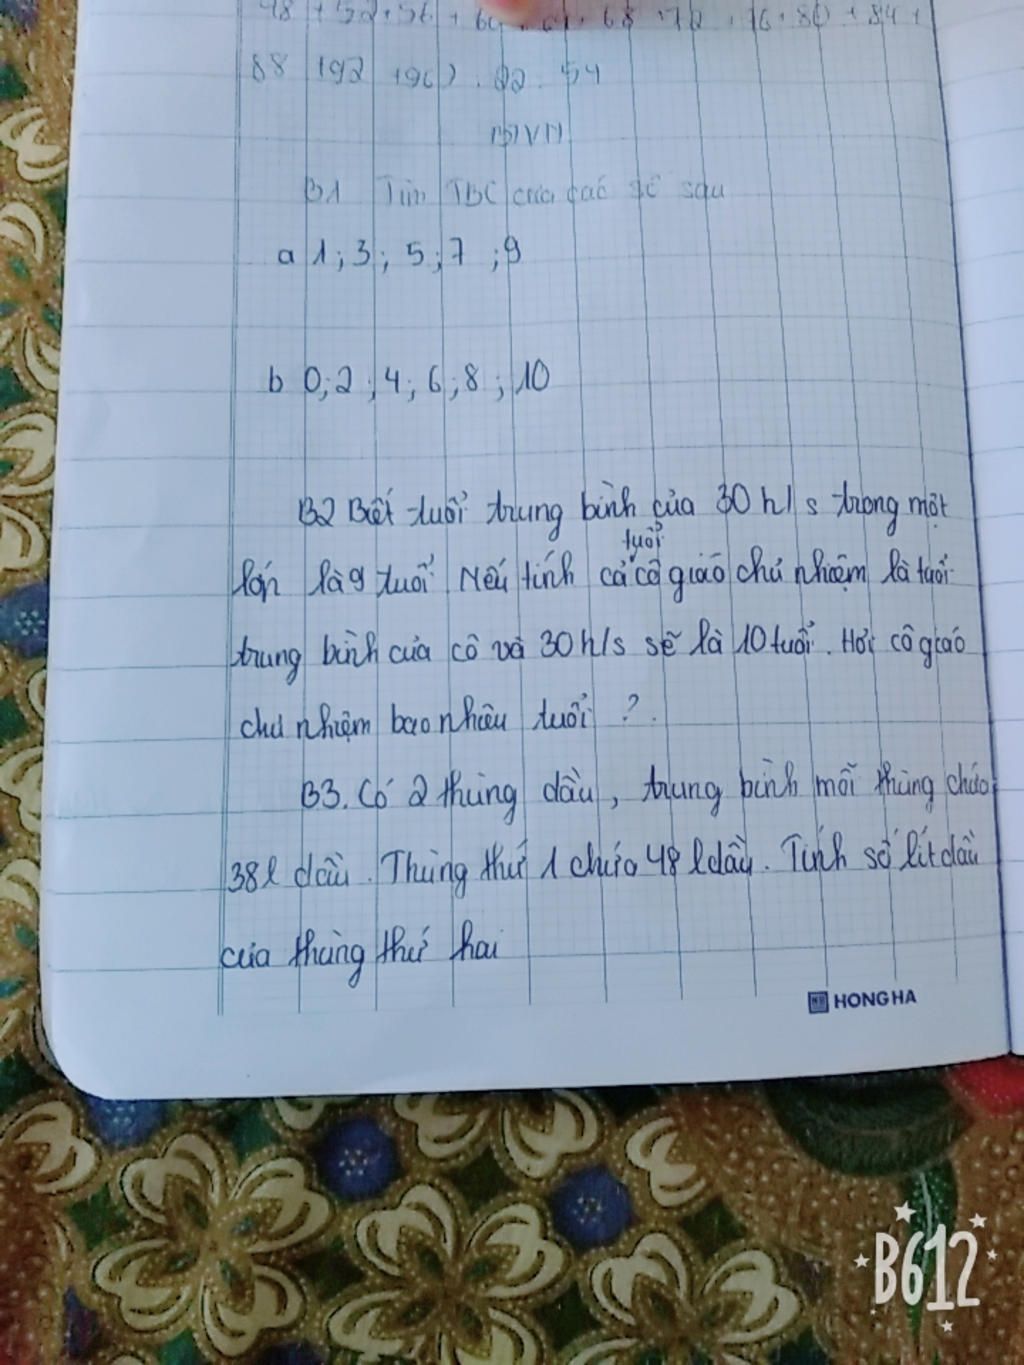 48 + 52 + 56 + 60 + 64 + 68 + 72 + 76 + 80 + 84 +
88 + 92 + 96) : 54
BTVN
B1 Tìm TBC của các số sau
a 1; 3; 5; 7; 9
b 0; 2; 4; 6; 8; 10
B2 Biết tuổi trung bình của 30 h/s trong một
lớp là 9 tuổi. Nếu tính cả tuổi cô giáo chủ nhiệm là tuổi
trung bình của cô và 30 h/s sẽ là 10 tuổi. Hỏi cô giáo
chủ nhiệm bao nhiêu tuổi ?.
B3. Có 2 thùng dầu, trung bình mỗi thùng chứa
38l dầu. Thùng thứ 1 chứa 48 l dầu. Tính số lít dầu
của thùng thứ hai
HONG HA
B612